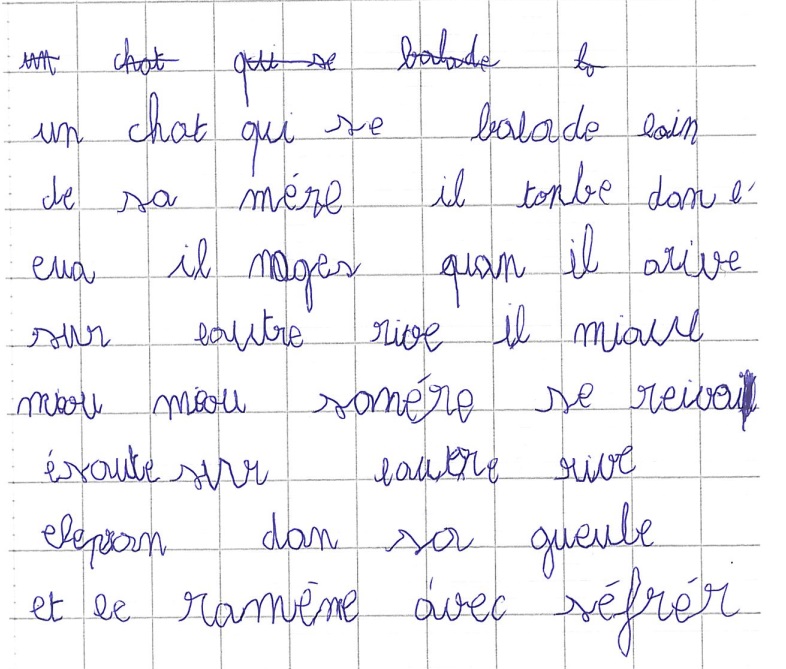 un chat qui se balade lo
un chat qui se balade loin
de sa mére il tonbe dan l'
eua il nages quan il arive
sur lautre rive il miaule
miaou miaou samére se reivai
éraute sur lautre rive
elepran dan sa gueule
et le ramène àvec séfrér